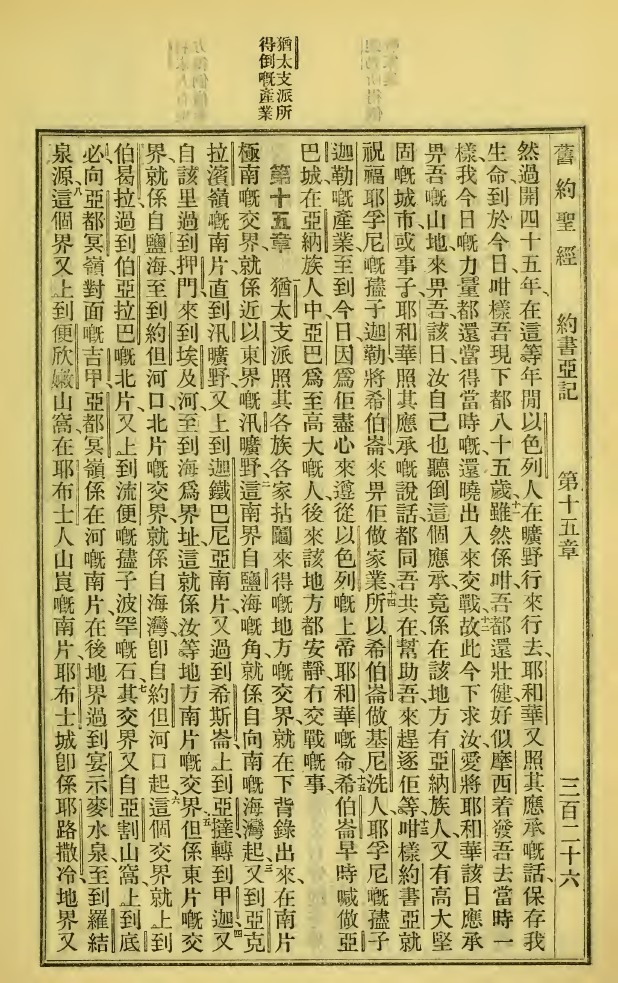 猶太支派所
得倒嘅產業
舊約聖經 約書亞記 第十五章 三百二十六
然過開四十五年在這等年間以色列人在曠野行來行去耶和華又照其應承嘅話保存我
生命到於今日咁樣吾現下都八十五歲十一雖然係咁吾都還壯健好似摩西着發吾去當時一
樣我今日嘅力量都還當得當時嘅還曉出入來交戰十二故此今下求汝愛將耶和華該日應承
畀吾嘅山地來畀吾該日汝自己也聽倒這個應承竟係在該地方有亞納族人又有高大堅
固嘅城市或事子耶和華照其應承嘅說話都同吾共在幫助吾來趕逐佢等十三咁樣約書亞就
祝福耶孚尼嘅孻子迦勒將希伯崙來畀佢做家業十四所以希伯崙做基尼洗人耶孚尼嘅孻子
迦勒嘅產業至到今日因爲佢盡心來遵從以色列嘅上帝耶和華嘅命十五希伯崙早時喊做亞
巴城在亞納族人中亞巴爲至高大嘅人後來該地方都安靜冇交戰嘅事
第十五章 猶太支派照其各族各家拈鬮來得嘅地方嘅交界就在下背錄出來在南片
極南嘅交界就係近以東界嘅汛曠野二這南界自鹽海嘅角就係自向南嘅海灣起三又到亞克
拉濱嶺嘅南片直到汛曠野又上到迦鐵巴尼亞南片又過到希斯崙上到亞撻轉到甲迦四又
自該里過到押門來到埃及河至到海爲界址這就係汝等地方南片嘅交界五但係東片嘅交
界就係自鹽海至到約但河口北片嘅交界就係自海灣卽自約但河口起六這個交界就上到
伯曷拉過到伯亞拉巴嘅北片又上到流便嘅孻子波罕嘅石七其交界又自亞割山窩上到底
必向亞都冥嶺對面嘅吉甲亞都冥嶺係在河嘅南片在後地界過到宴示麥水泉至到羅結
泉源八這個界又上到便欣嫩山窩在耶布士人山崀嘅南片耶布士城卽係耶路撒冷地界又